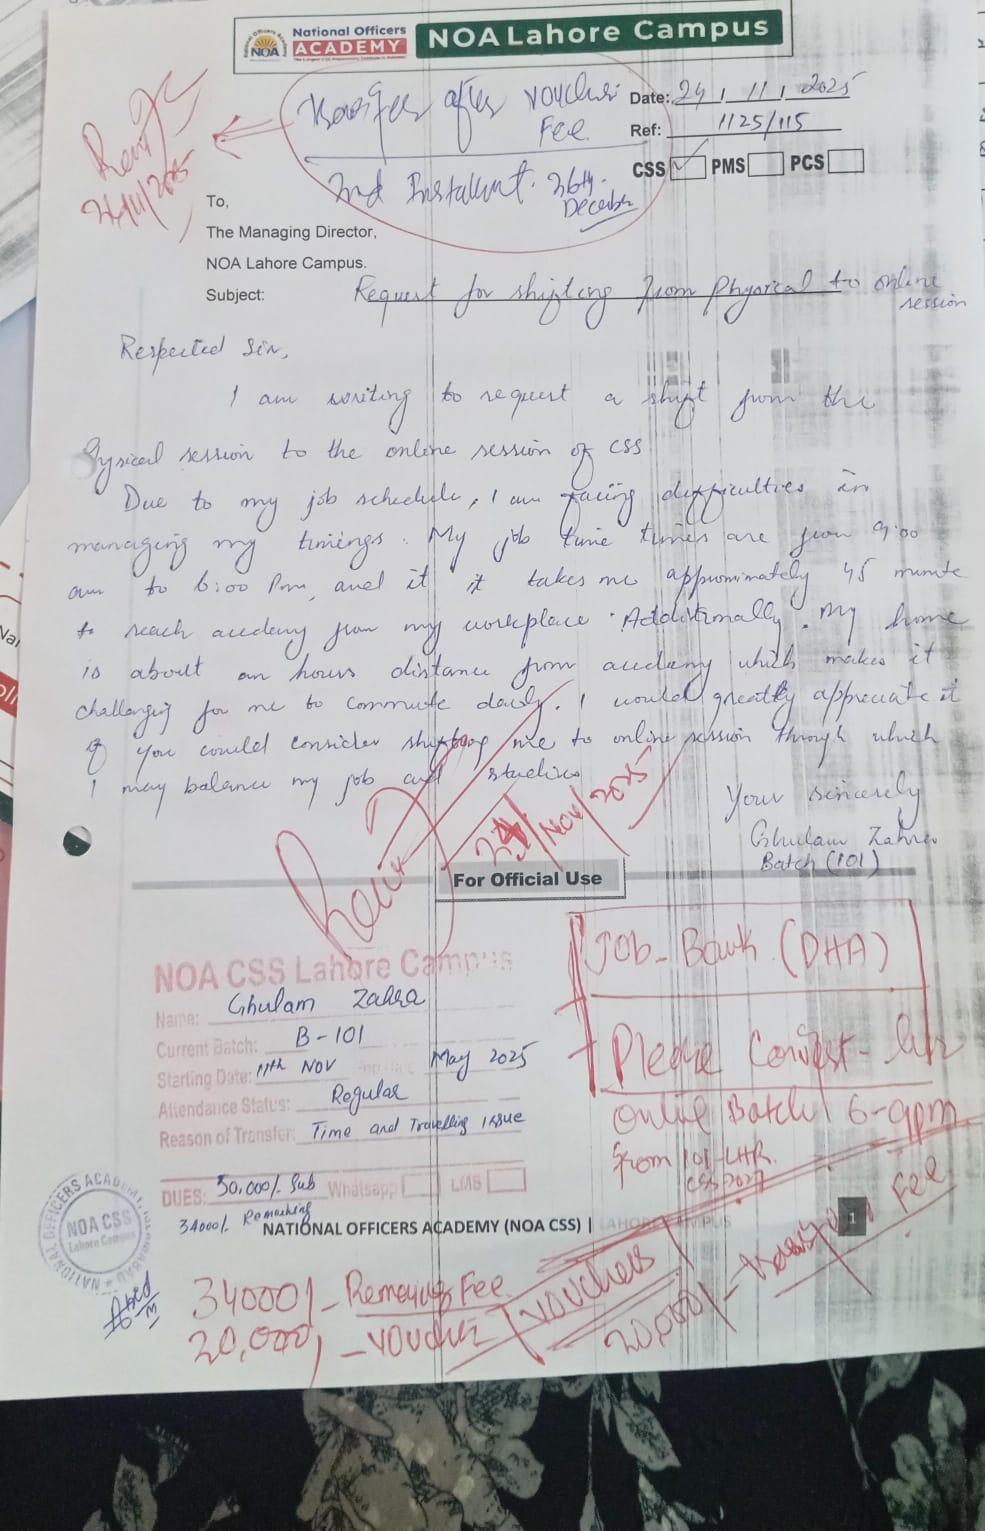 National Officers
ACADEMY
NOA
NOA Lahore Campus
after voucher Fee.
2nd Installment. 26th. December
Date: 24 / 11 / 2025
Ref: 1125/115
CSS ✓ PMS PCS
To,
The Managing Director,
NOA Lahore Campus.
Subject: Request for shifting from Physical to online session
Respected Sir,
I am writing to request a shift from the
Pysical session to the online session of CSS
Due to my job schedule, I am facing difficulties in
managing my timings. My job time times are from 9:00
am to 6:00 Pm, and it it takes me approximately 45 minute
to reach acedemy from my workplace. Additionally. My home
is about an hours distance from acedemy which makes it
challenging for me to commute daily. I would greatly appreciate it
if you could consider shifting me to online session through which
I may balance my job and studies
Your sincerely
Ghulam Zahra
Batch (101)
24/Nov/2025
For Official Use
NOA CSS Lahore Campus
Name: Ghulam Zahra
Current Batch: B-101
Starting Date: 11th NOV May 2025
Attendance Status: Regular
Reason of Transfer: Time and Travelling issue
DUES: 50,000/- Sub Whatsapp LMS
34000/. Remaining
Job - Bank (DHA)
Please
Online Batch 6-9pm
from 101-LHR
CSS 2027
NATIONAL OFFICERS ACADEMY (NOA CSS) | LAHORE CAMPUS 1
NOA CSS
Lahore Campus
34000/- Remaining Fee.
20,000/- voucher
vouchers
20,000/- Fee